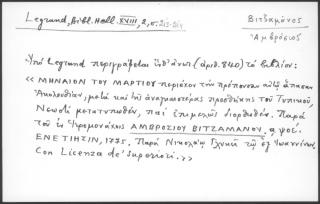 Legrand, Bibl. Hell. XVIII, 2, σ. 213-214
Βιτζαμάνος
Ἀμβρόσιος
Ὑπὸ Legrand περιγράφεται ὑπ' ἀριθ. (ἀριθ. 840) τὸ βιβλίον:
« ΜΗΝΑΙΟΝ ΤΟΥ ΜΑΡΤΙΟΥ περιέχον τὴν πρέπουσαν αὐτῷ ἅπασαν
Ἀκολουθίαν, μετὰ καὶ τῆς ἀναγκαιοτέρας προσθήκης τοῦ Τυπικοῦ,
Νεωστὶ μετατυπωθέν, καὶ ἐπιμελῶς διορθωθέν. Παρὰ
τοῦ ἐν Ἱερομονάχοις ΑΜΒΡΟΣΙΟΥ ΒΙΤΖΑΜΑΝΟΥ, αψοε.
ΕΝΕΤΙΗΣΙΝ, 1775. Παρὰ Νικολάῳ Γλυκεῖ τῷ ἐξ Ἰωαννίνων.
Con Licenza de' Superiori. »